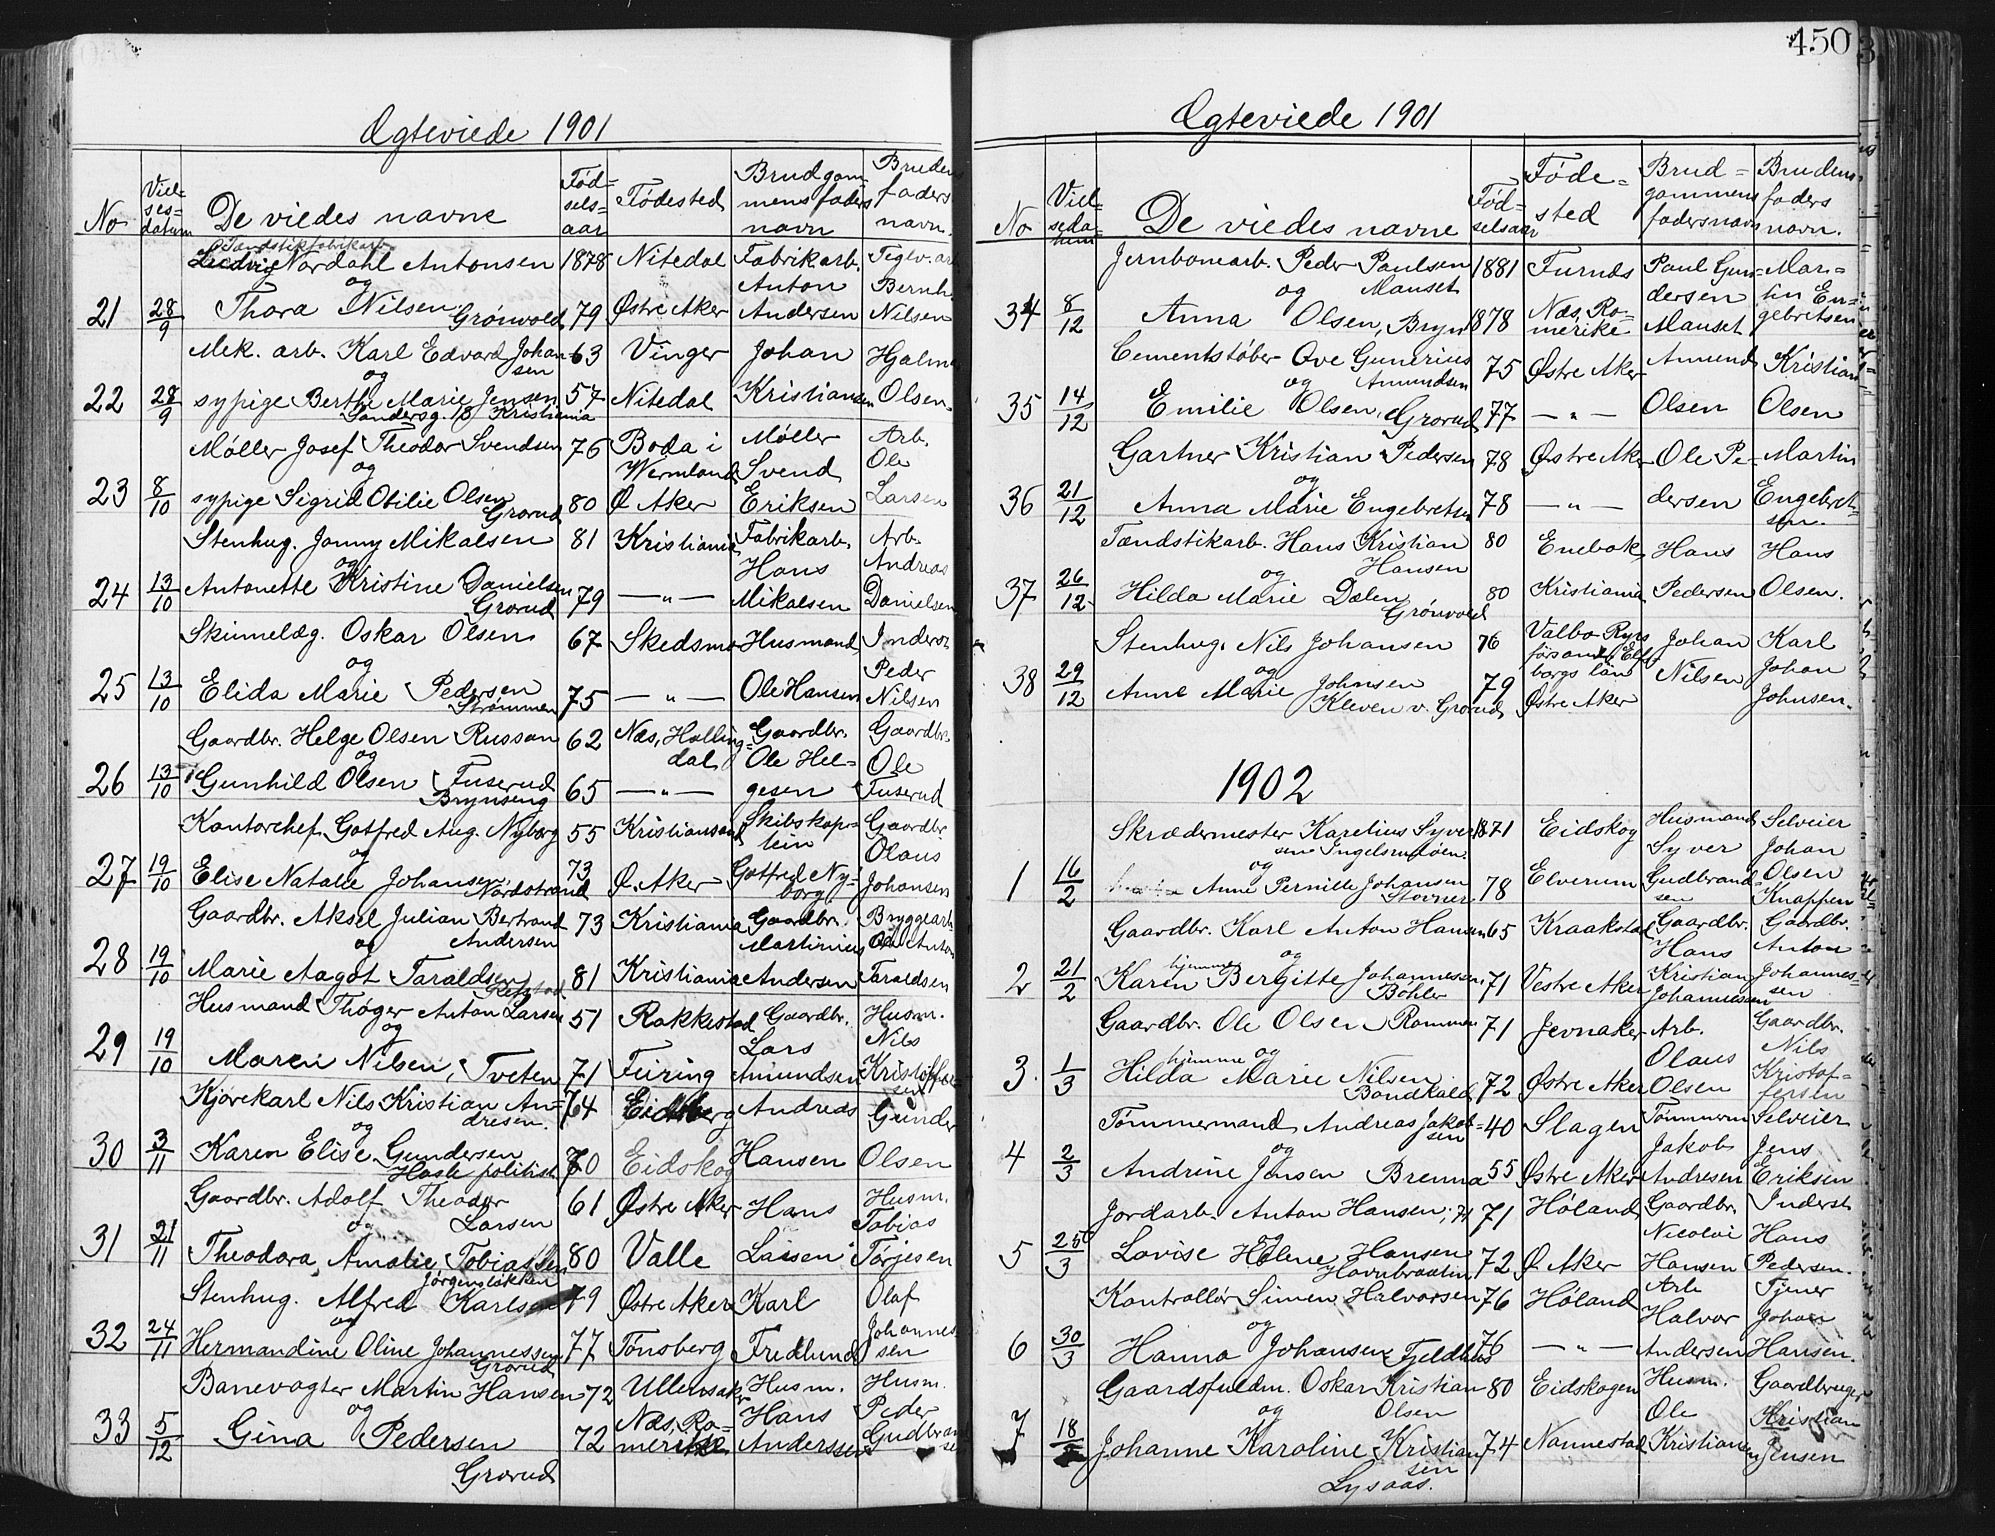 Ægteviede 1901
No
Viel-
ses-
datum
De viedes navne
Fød-
sels-
aar
Fødested
Brudgom-
mens faders
navn
Brudens
faders
navn.
Tændstikfabrikarb.
Ludvig Nordahl Antonsen 1878 Nitedal Fabrikarb. Teglv. arb.
og Anton Bernh.
21 28/9 Thora Nilsen Grønvold 79 Østre Aker Andersen Nilsen
Mek. arb. Karl Edvard Johan- 63 Vinger Johan Hjalmar
sen
og
22 28/9 sypige Berthe Marie Jensen 57 Nitedal Kristiansen Olsen
Sandersg. 18 Kristiania
Møller Josef Theodor Svendsen 76 Boda i Møller Arb.
og Wermland Svend Ole
23 8/10 sypige Sigrid Otilie Olsen 80 Ø. Aker Eriksen Larsen
Grorud
Stenhug. Jonny Mikalsen 81 Kristiania Fabrikarb. Arb.
og Hans Andreas
24 13/10 Antonette Kristine Danielsen 79 — " — Mikalsen Danielsen
Grorud
Skinnelæg. Oskar Olsen 67 Skedsmo Husmand Inderst
og Peder
25 13/10 Elida Marie Pedersen 75 — " — Ole Hansen Nilsen
Strømmen
Gaardbr. Helge Olsen Russan 62 Næs, Halling- Gaardbr. Gaardbr.
og dal Ole Hel- Ole
26 13/10 Gunhild Olsen Tuserud 65 — " — gesen Tuserud
Brynseng
Kontorchef Gotfred Aug. Nyborg 55 Kristiansand Skibskap- Gaardbr.
og tein Olaus
27 19/10 Elise Natalie Johansen 73 Ø. Aker Gotfred Ny- Johansen
Nordstrand borg
Gaardbr. Aksel Julian Bertrand 73 Kristiania Gaardbr. Bryggearb.
og Andersen Martinius Ole Anton
28 19/10 Marie Aagot Taraldsen 81 Kristiania Andersen Taraldsen
Husmand Thøger Anton Larsen 51 Rakkestad Gaardbr. Husm.
og Lars Nils
29 19/10 Maren Nilsen, Tveten 71 Feiring Amundsen Kristoffer-
sen
Kjørekarl Nils Kristian An- 64 Eidsberg Andreas Gunder
dresen.
og
30 3/11 Karen Elise Gundersen 70 Eidskog Hansen Olsen
Hasle politist.
Gaardbr. Adolf Theodor 61 Østre Aker Hans Husm.
og Larsen Tobias
31 21/11 Theodora Amalie Tobiassen 80 Valle Larsen Tørjesen
Jørgensløkken
Stenhug. Alfred Karlsen 79 Østre Aker Karl Olaf
og
32 24/11 Hermandine Oline Johannessen 77 Tønsberg Fredlund Johannes-
sen
Grorud
Banevogter Martin Hansen 72 Ullensaker Husm. Husm.
og Hans Peder
33 5/12 Gina Pedersen 72 Næs, Ro- Anderssen Gudbrand-
merike sen
Grorud
450
Ægteviede 1901
No
Viel-
seda-
tum
De viedes navne
Fød-
selsaar
Føde-
sted
Brud-
gommens
fadersnavn
Brudens
faders
navn.
Jernbanearb. Peder Paulsen 1881 Furnæs Paul Gun- Mar-
og Manset dersen tin En-
34 8/12 Anna Olsen, Bryn 1878 Næs, Ro- Manset gebretsen
merike
Cementstøber Ove Gunerius 75 Østre Aker Amund Kristian
og Amundsen
35 14/12 Emilie Olsen, Grorud 77 — " — Olsen Olsen
Gartner Kristian Pedersen 78 Østre Aker Ole Pe- Martin
og
36 21/12 Anna Marie Engebretsen 78 — " — dersen Engebret-
sen.
Tændstikarb. Hans Kristian 80 Enebak Hans Hans
og Hansen
37 26/12 Hilda Marie Dælen 80 Kristiania Pedersen Olsen.
Grønvold
Stenhug. Nils Johansen 76 Valbo Ryrs Johan Karl
og
38 29/12 Anne Marie Johnsen 79 Østre Aker Nilsen Johan
borgs län
Kleven v. Grorud Johnsen.
1902
Skrædermester Karelius Syver- 1871 Eidskog Husmand Selveier
sen Ingelsrudøen Syver Johan
og
1 16/2 Anne Pernille Johansen 78 Elverum Gudbrand- Olsen
Stovner sen Knappen
Gaardbr. Karl Anton Hansen 65 Kraakstad Gaardbr. Gaardbr.
og Hans Anton
hjemme
2 21/2 Karen Bergitte Johannesen 71 Vestre Aker Kristian Johannes-
Bøhler Johannesen sen
Gaardbr. Ole Olsen Rommen 71 Jevnaker Arb. Gaardbr.
hjemme og Olaus Nils
3. 1/3 Hilda Marie Nilsen 72 Østre Aker Olsen Kristof-
Bondkald fersen
Tømmermand Andreas Jakob- 40 Slagen Tømmerm Selveier
sen
og Jakob Jens
4 2/3 Andrine Jensen Brenna 55 Østre Aker Andresen Eriksen
Jordarb. Anton Hansen, 71 Høland Gaardbr. Inderst
og Nicolai Hans
5 25/3 Lovise Helene Hansen 72 Ø. Aker Hansen Pedersen.
Havnbraaten
Kontrollør Simen Halvorsen 76 Høland Arb Tjener
og Halvor Johan
6 30/3 Hanna Johansen Fjeldhus 76 — " — Andersen Hansen.
Gaardsfuldm. Oskar Kristian 80 Eidskogen Husm. Gaardbruger
og Olsen Ole Kristian
7 18 Johanne Karoline Kristian- 74 Nannestad Kristiansen Jensen
sen
Lysaas.